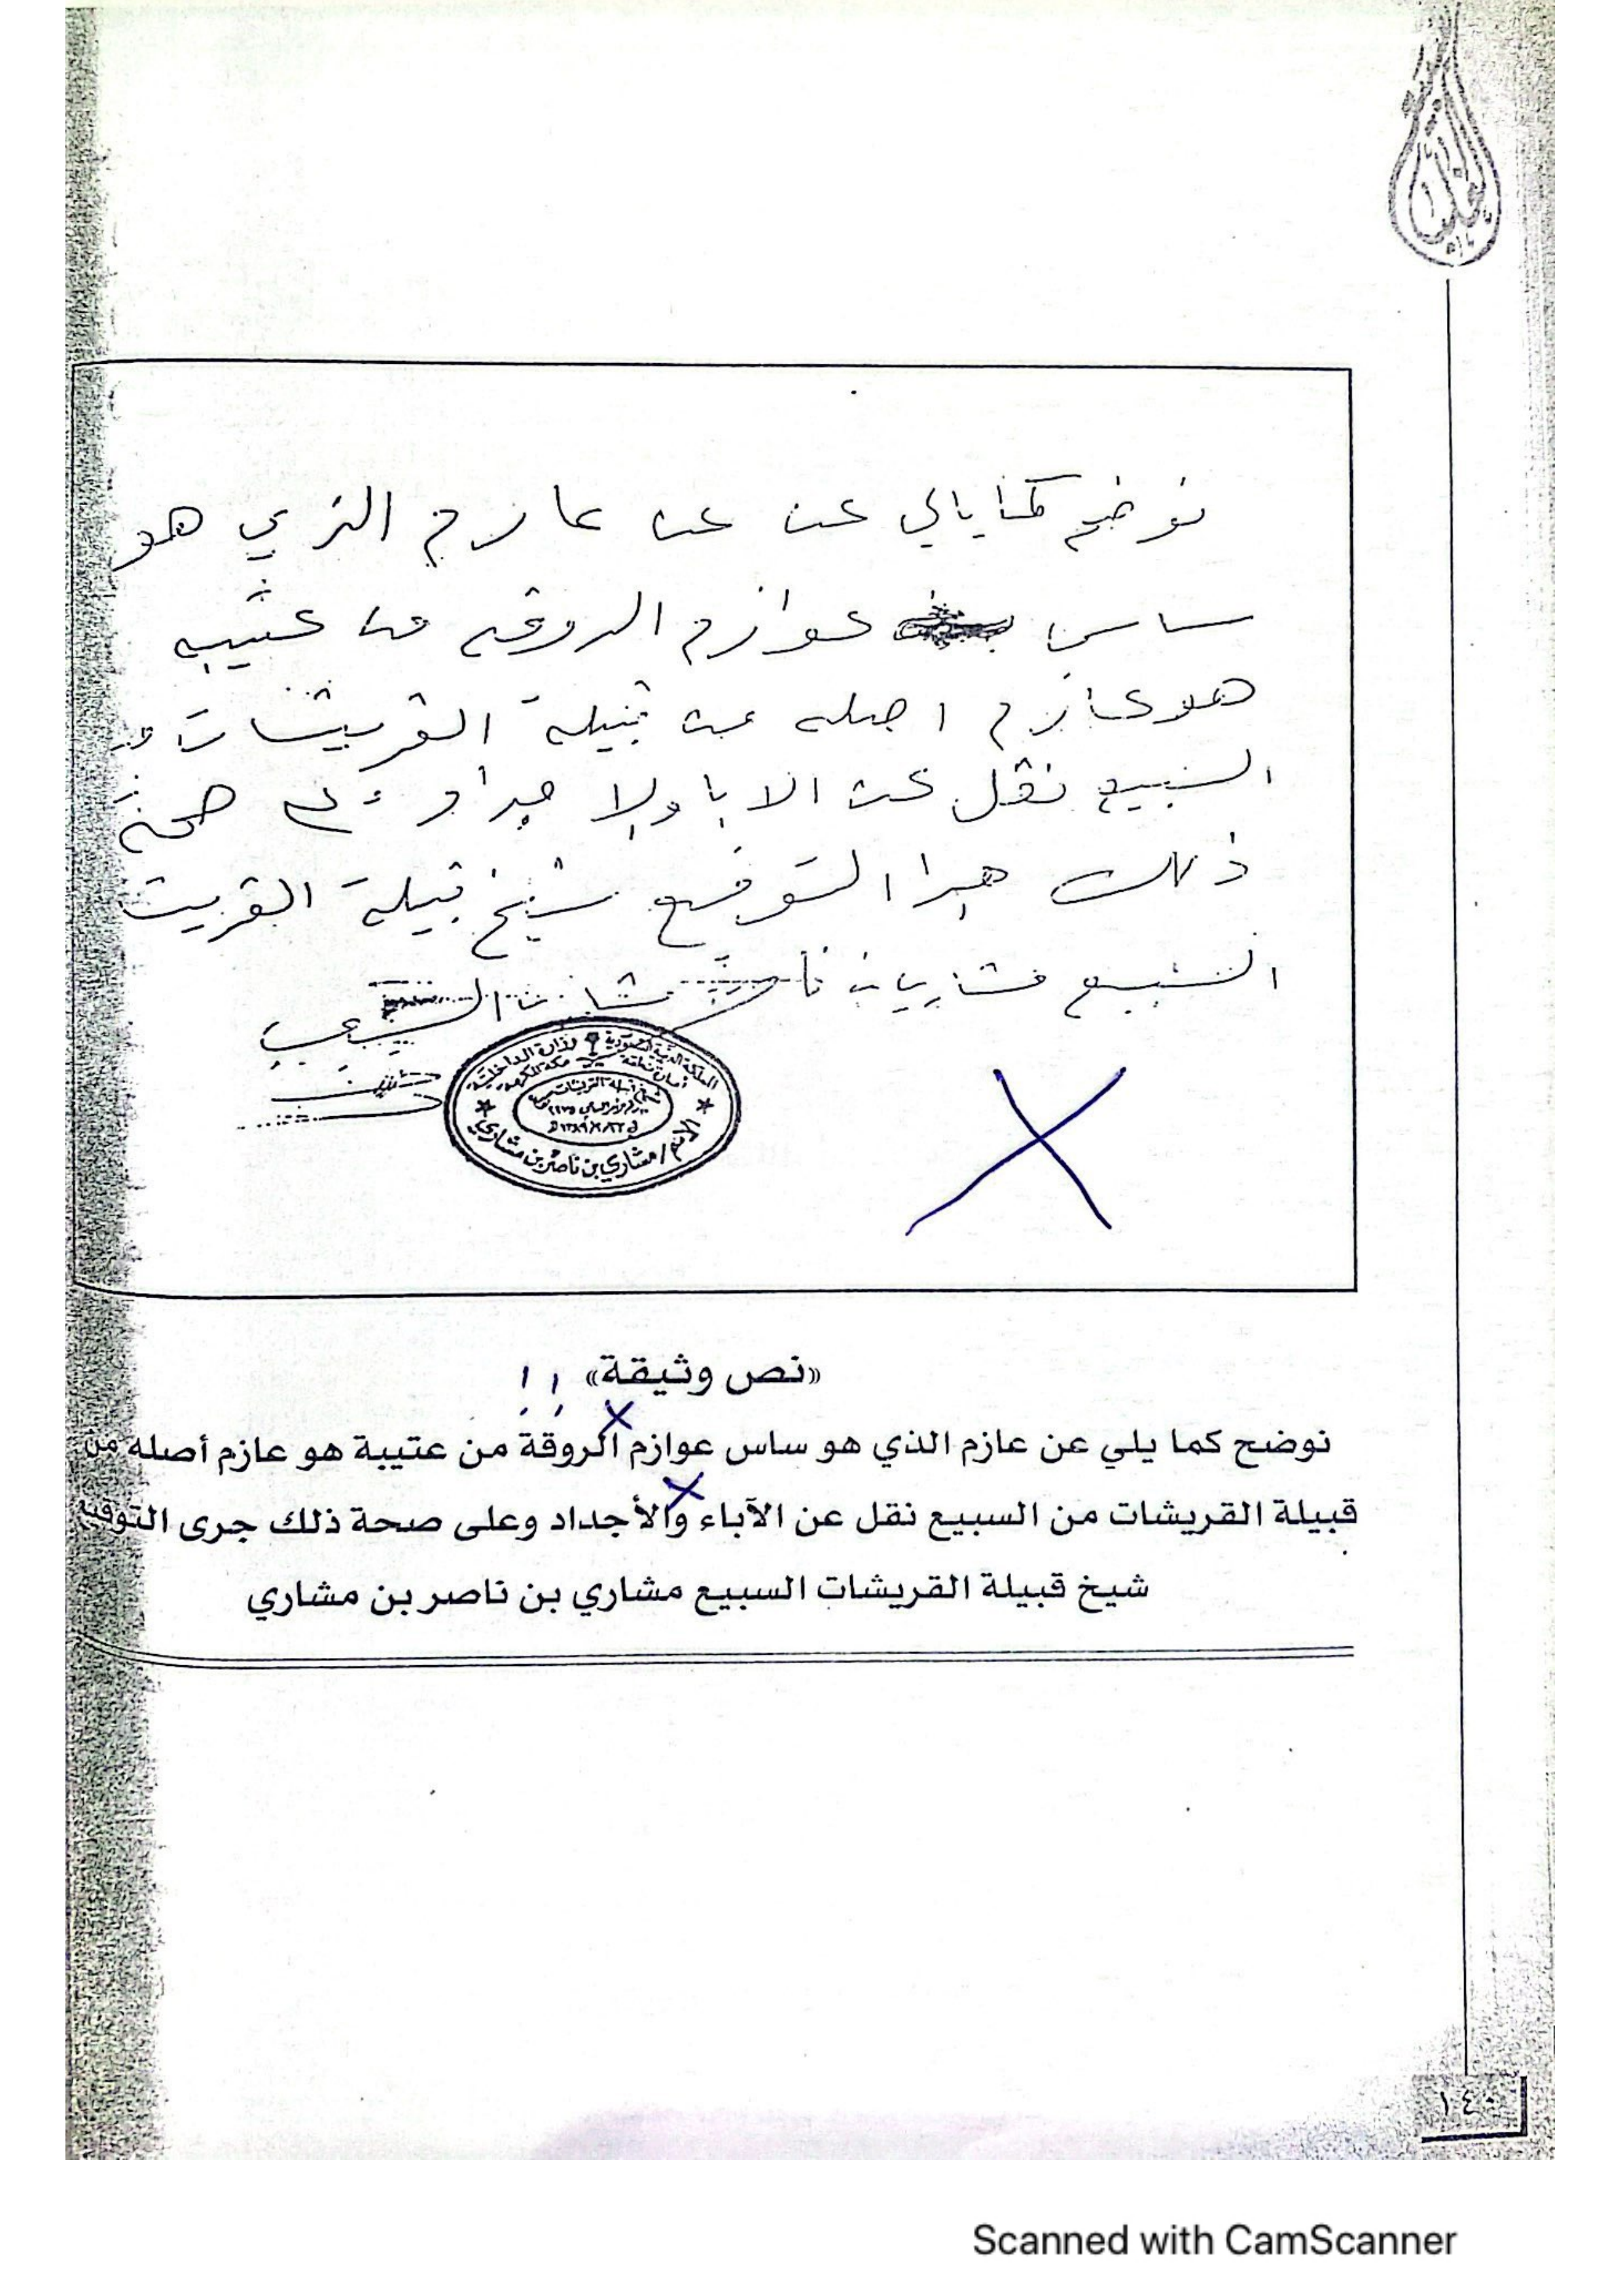 نوضح كمايالي عن عن عازم الذي هو
ساس عوازم الروقه من عتيبه
هو عازم اصله من قبيلة القريشات من
السبيع نقل عن الابا والا جدا و ع صحة
ذلك جرا التوقيع شيخ قبيلة القريشات
السبيع مشاري بن ناصر
المملكة العربية السعودية وزارة الداخلية
الاسم / مشاري بن ناصر بن مشاري
«نص وثيقة» ! !
نوضح كما يلي عن عازم الذي هو ساس عوازم الروقة من عتيبة هو عازم أصله من
قبيلة القريشات من السبيع نقل عن الآباء والأجداد وعلى صحة ذلك جرى التوقيع
شيخ قبيلة القريشات السبيع مشاري بن ناصر بن مشاري
١٤٠
Scanned with CamScanner